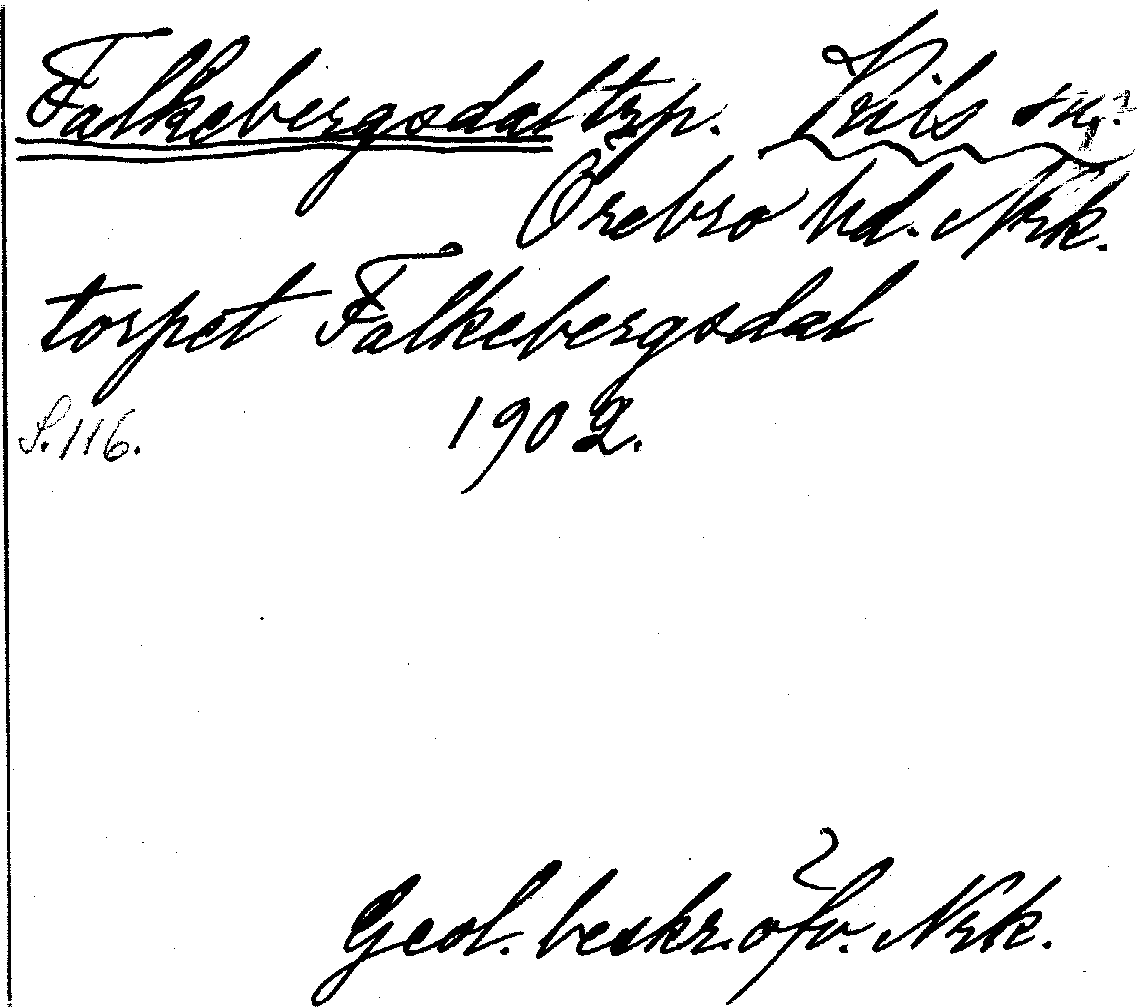 Falkebergsdal trp. Kils sn.?
Örebro hd. Nrk.
torpet Falkebergsdal
S. 116. 1902.
Geol. beskr. öfv. Nrk.